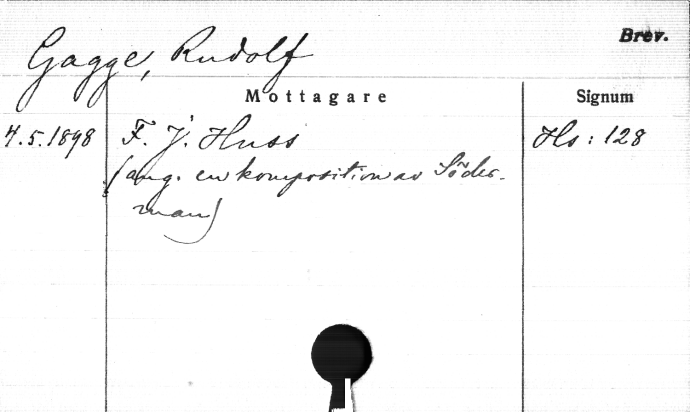 Gagge, Rudolf
Brev.
Mottagare Signum
7.5.1898 F. J. Huss Hs: 128
(ang. en komposition av Söder-
man)